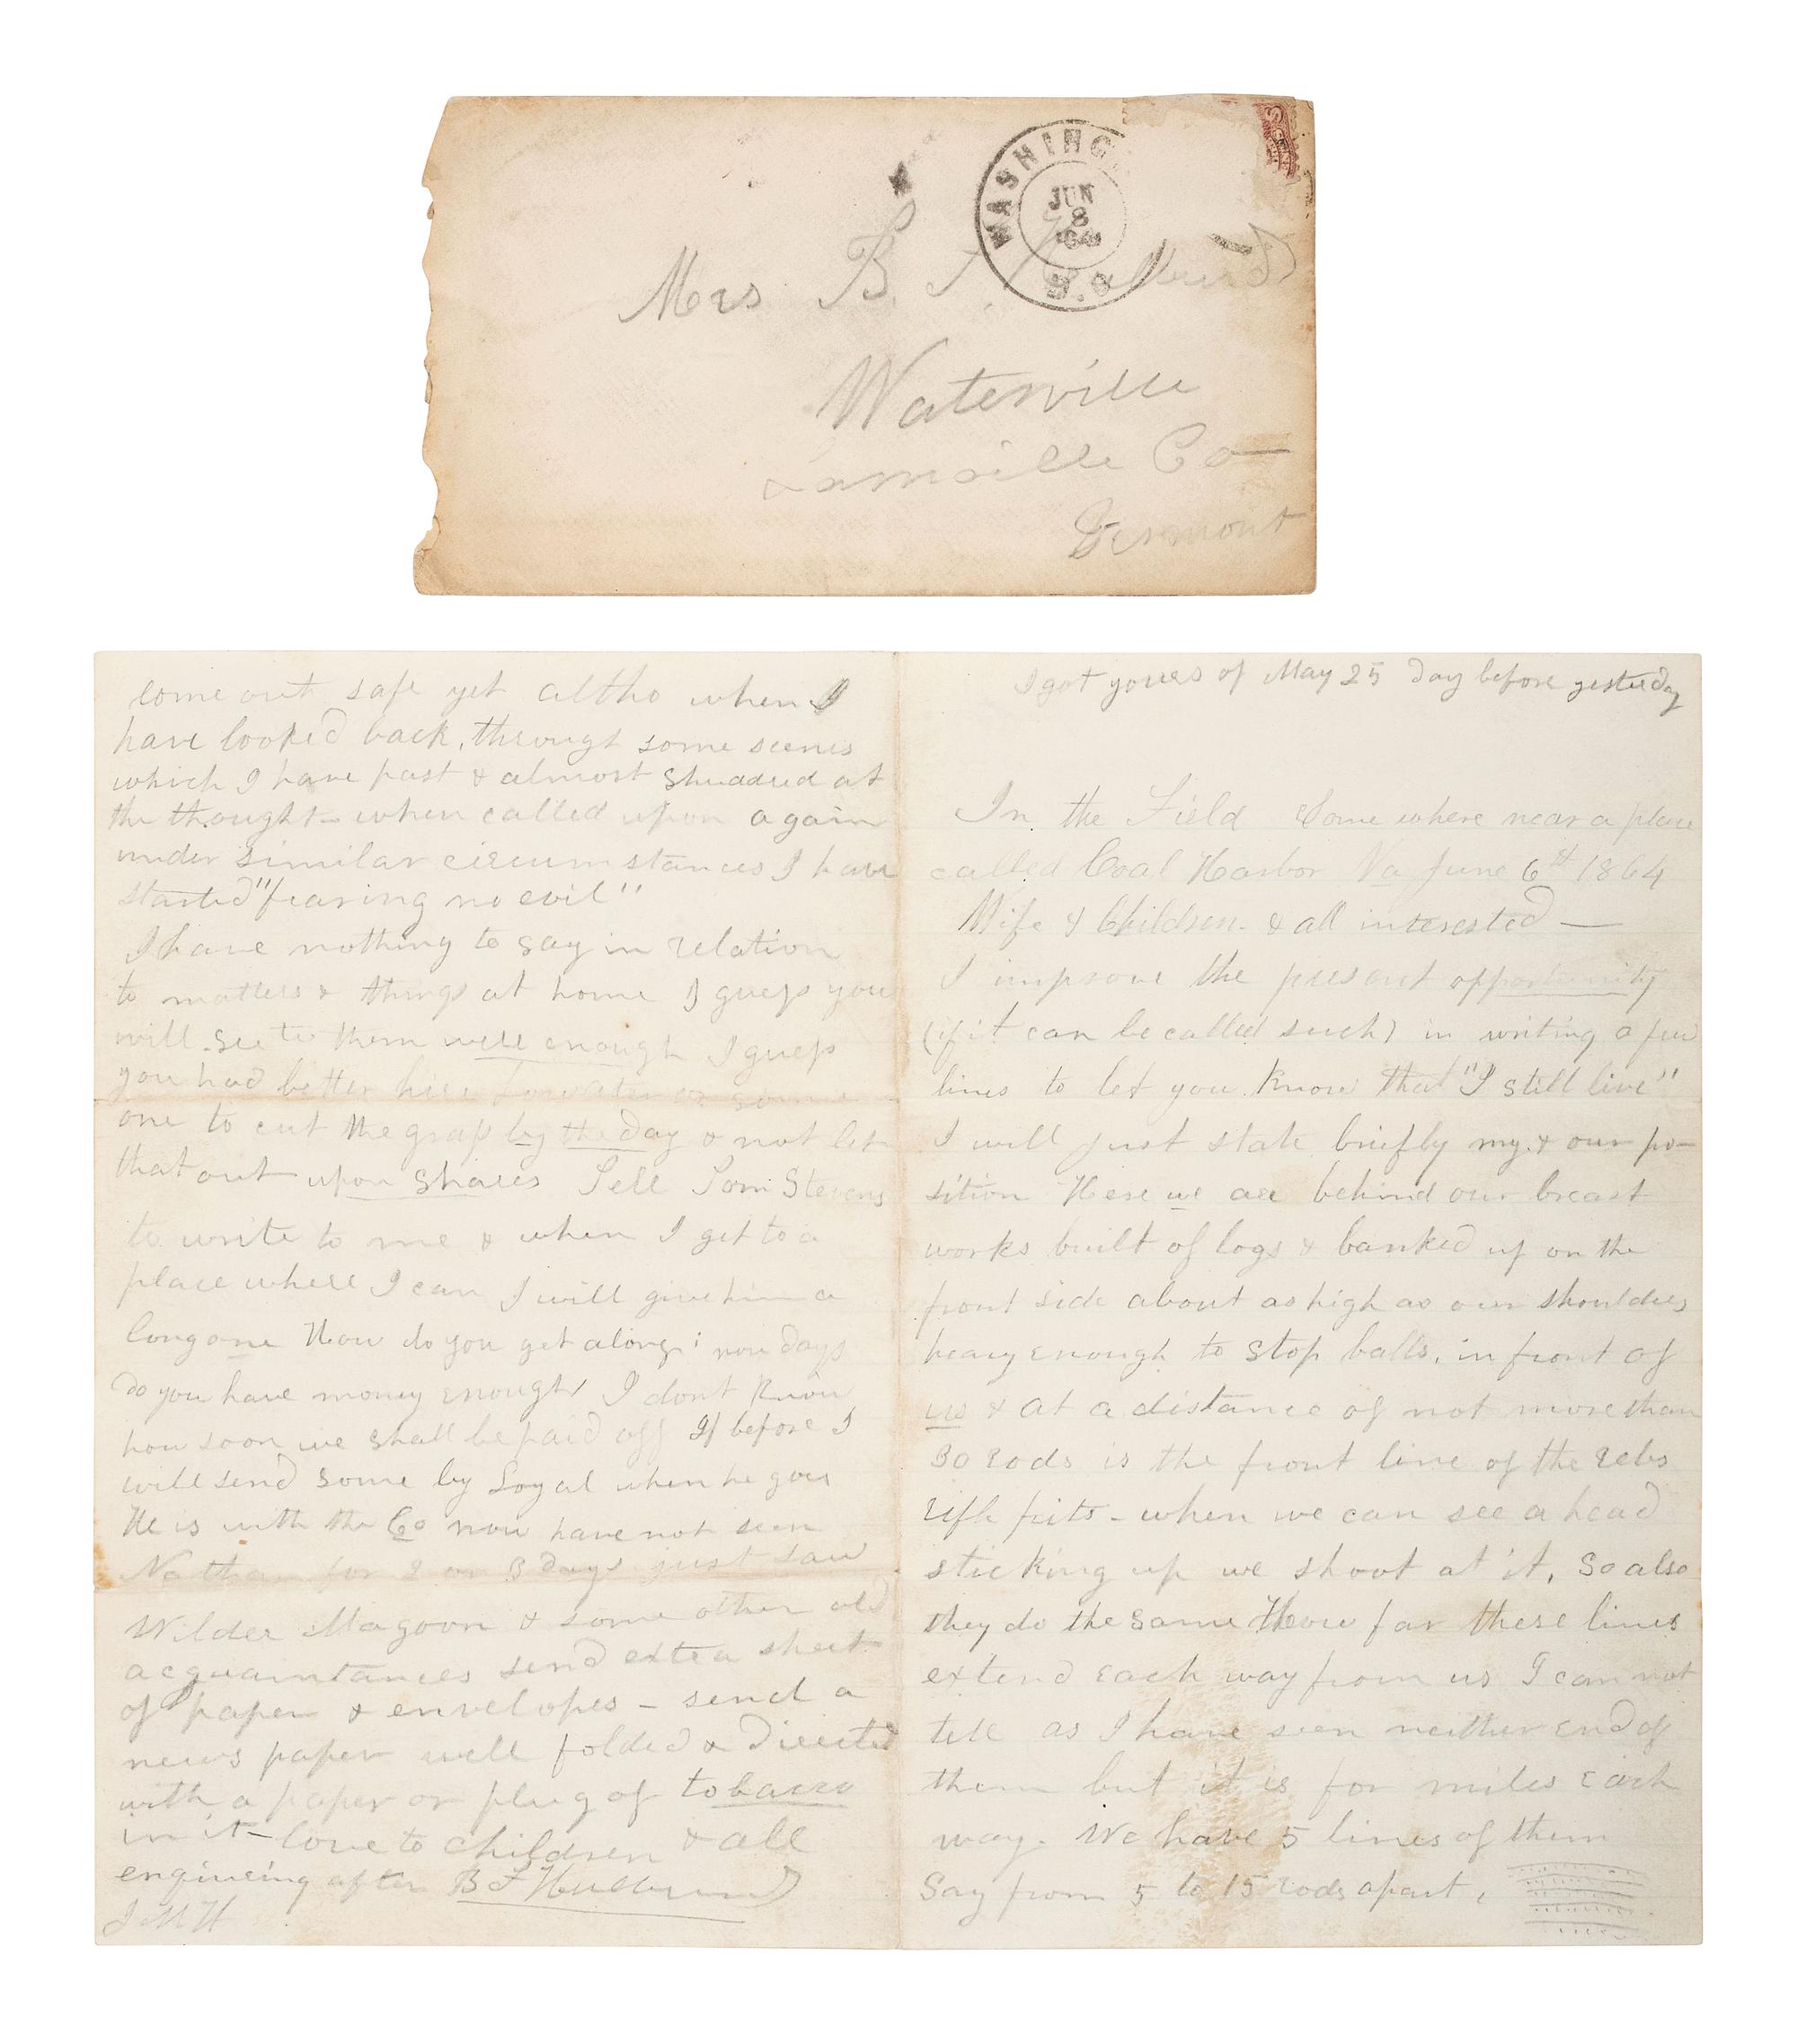 WASHING
JUN
8
64
D.C
Mrs B. F.
Waterville
Lamoille Co
Vermont
I got youres of May 25 day before yesterday
In the Field Some where near a place
called Coal Harbor Va June 6th 1864
Wife & Children. & all interested —
I improve the present opportunity
(if it can be called such) in writing a few
lines to let you know that "I still live"
I will just state briefly my & our po-
sition Here we are behind our breast
works built of logs & banked up on the
front side about as high as our shoulders
heavy enough to stop balls, in front of
us & at a distance of not more than
30 rods is the front line of the rebs
rifle pits - when we can see a head
sticking up we shoot at it, So also
they do the same How far these lines
extend each way from us I can not
tell as I have seen neither end of
them but it is for miles each
way. We have 5 lines of them
Say from 5 to 15 rods apart,
come out safe yet altho when I
have looked back, through some scenes
which I have past & almost shuddred at
the thought - when called upon again
under similar circumstances I have
started "fearing no evil"
I have nothing to say in relation
to matters & things at home I guess you
will see to them well enough I guess
you had better hire or some
one to cut the grass by the day & not let
that out upon shares Tell Tom Stevens
to write to me & when I get to a
place where I can I will give him a
long one How do you get along now days
do you have money enough I dont know
how soon we shall be paid off If before I
will send some by Loyal when he goes
He is with the Co now have not seen
Nathan for 2 or 3 days just saw
Wilder Magoon & some other old
acquaintances send extra sheet
of paper & envelopes - send a
news paper well folded & directed
with a paper or plug of tobacco
in it - love to children & all
enquireing after B F